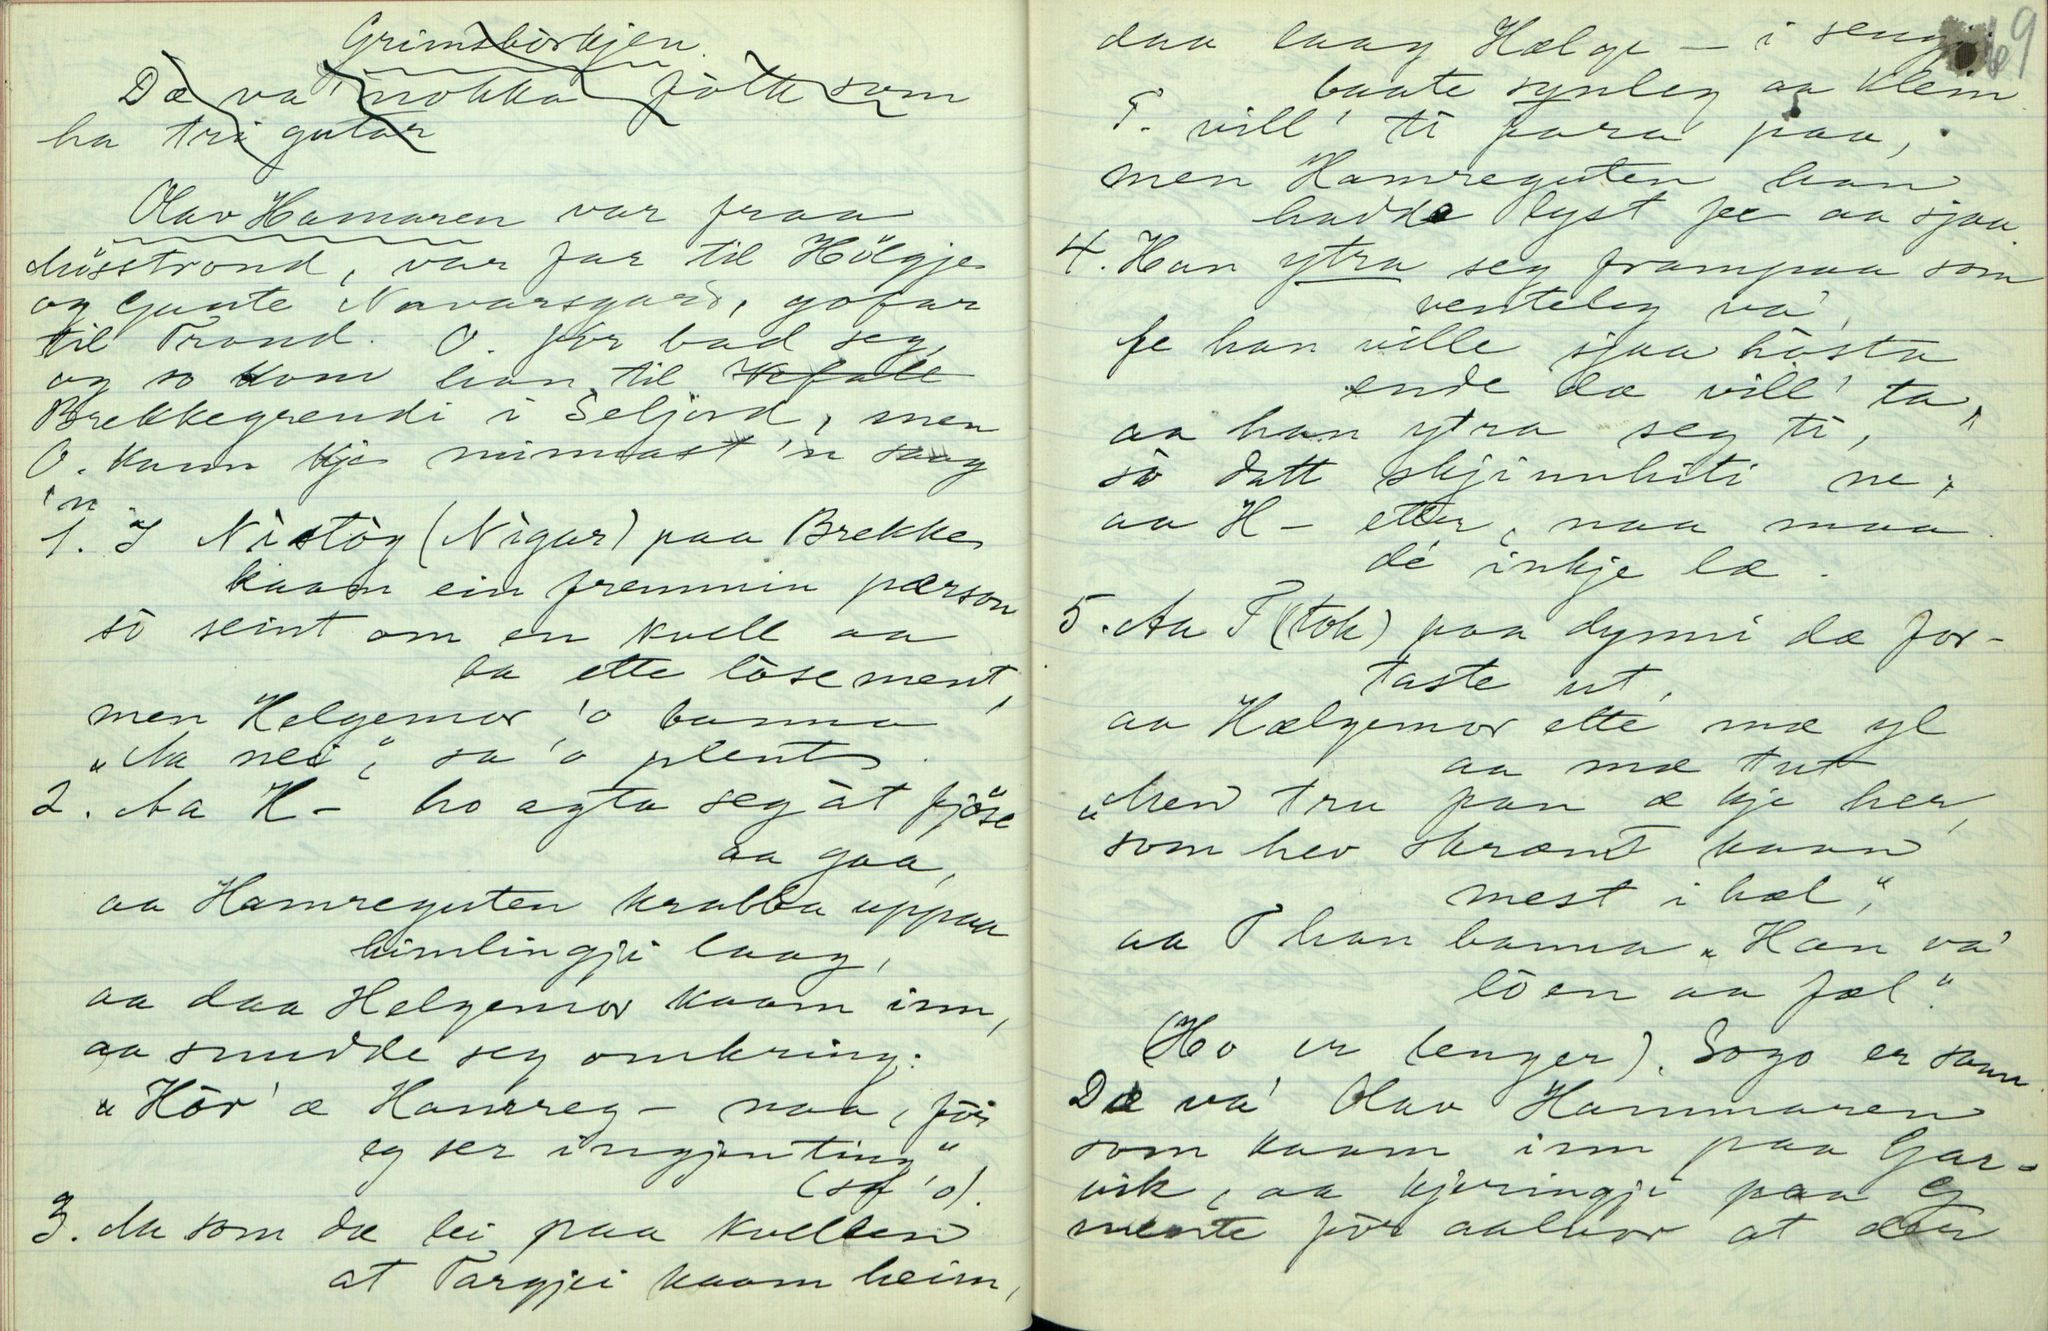 Grimsborkjen.
Dæ va' nokka fòlk som
ha tri gutar
Olav Hamaren var fraa
Møsstrond, var far til Hölgje
og Gunte Navarsgard, gofar
til Trond. O. før bad seg,
og so kom han til
Brekkegrendi i Seljord, men
O. kann kje minnast 'n saag
'n.
1. I Nistòg (Nigar) paa Brekke
kaam ein fremmin pærson
sò seint om en kvell aa
ba ette lòsement,
men Helgemor 'o banna
"Aa nei", sa 'o plent.
2. Aa H- ho agta seg åt fjöse
aa gaa,
aa Hamreguten krabba uppaa
himlingji laag,
aa daa Helgemor kaam inn,
aa snudde seg omkring:
"Hòr' æ Hamreg- naa, før
eg ser ingjenting"
(sa 'o).
3. Aa som dæ lei paa kvellen
at Targjei kaam heim,
69
daa laag Hælge - i seng
baate synleg aa klein.
T. vill' ti fara paa,
men Hamreguten han
hadde lyst fe aa sjaa.
4. Han ytra seg frampaa som
venteleg va',
fe han ville sjaa hòsta
ende dæ vill' ta,
aa han ytra seg ti,
sò datt skjinnhiti ne,
aa H- etter, naa maa
dé inkje læ.
5. Aa T (tok) paa dynni dæ for-
taste ut,
aa Hælgemor ette mæ yl
aa mæ tut
"Men tru pan æ kje her,
som hev skræmt kaan
mest i hæl",
aa T han banna "Han va'
lòen aa fæl".
(Ho er lenger). Sogo er sann.
Dæ va' Olav Hammaren
som kaam inn paa Gar-
vik, aa kjeringji paa G
mente før aalvor at den